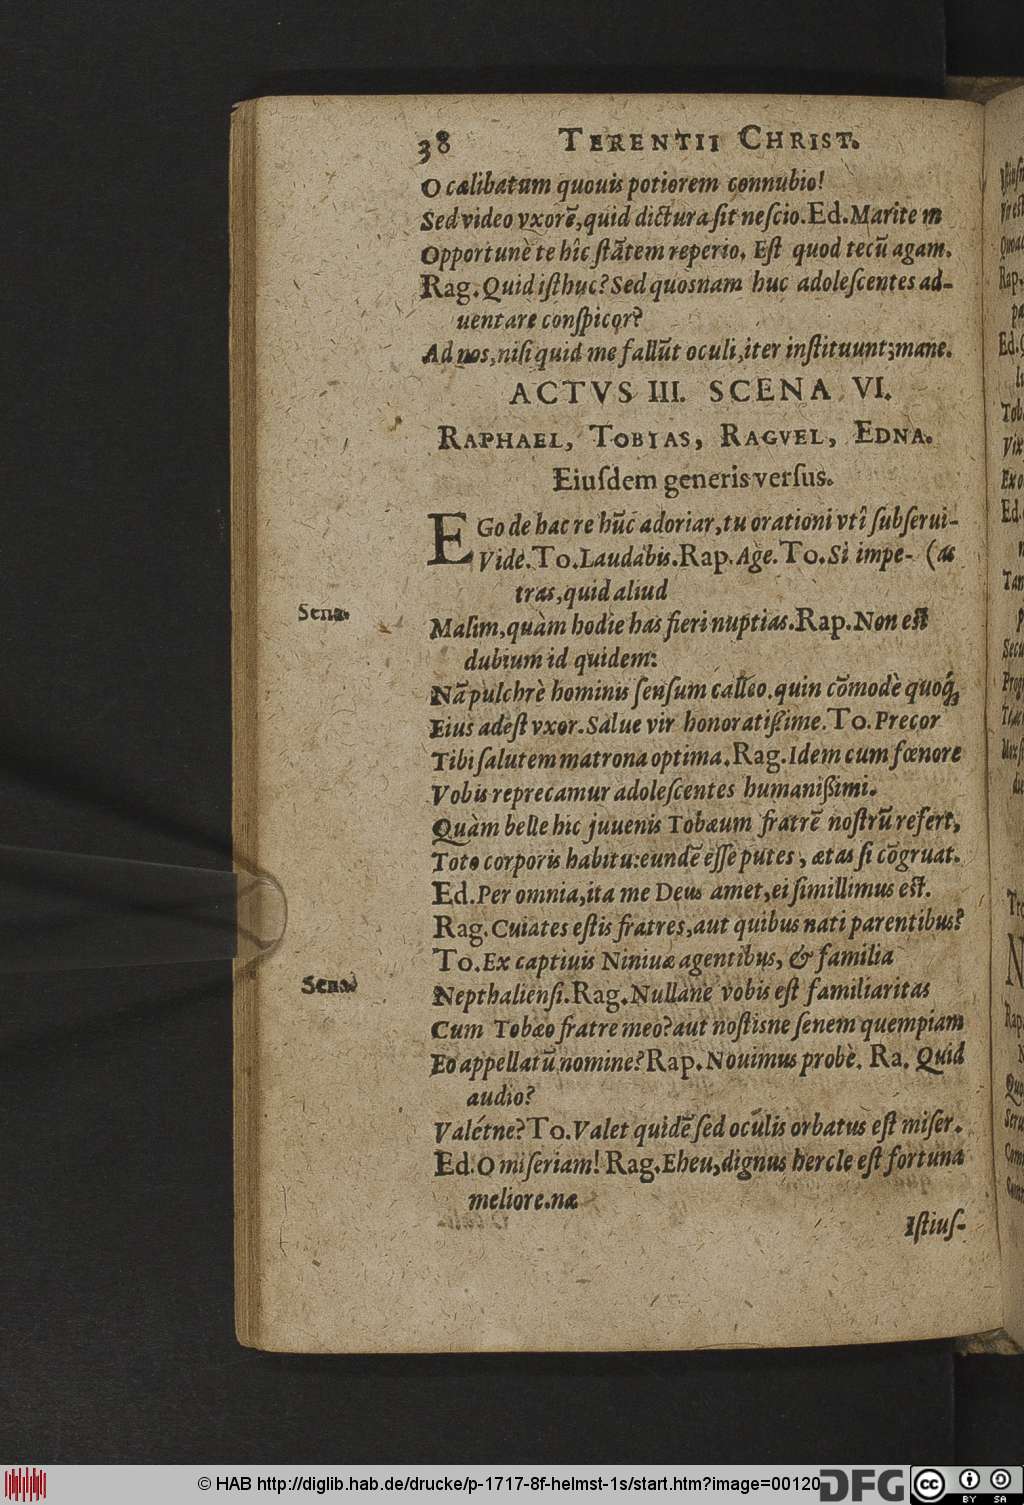 38 TERENTII CHRIST.
O cælibatum quouis potiorem connubio!
Sed video vxorē, quid dictura sit nescio. Ed. Marite m
Opportunè te hîc stātem reperio. Est quod tecū agam.
Rag. Quid isthuc? Sed quosnam huc adolescentes ad-
uentare conspicor?
Ad nos, nisi quid me fallūt oculi, iter instituunt; mane.
ACTVS III. SCENA VI.
RAPHAEL, TOBIAS, RAGVEL, EDNA.
Eiusdem generis versus.
EGo de hac re hūc adoriar, tu orationi vtî subserui-
Vide. To. Laudabis. Rap. Age. To. Si impe- (as
tras, quid aliud
Sena. Malim, quàm hodie has fieri nuptias. Rap. Non est
dubium id quidem:
Nā pulchrè hominis sensum calleo. quin cōmodè quoq́;
Eius adest vxor. Salue vir honoratissime. To. Precor
Tibi salutem matrona optima. Rag. Idem cum fœnore
Vobis reprecamur adolescentes humanissimi.
Quàm belle hic juuenis Tobæum fratrē nostrū refert,
Toto corporis habitu: eundē esse putes, ætas si cōgruat.
Ed. Per omnia, ita me Deus amet, ei simillimus est.
Rag. Cuiates estis fratres, aut quibus nati parentibus?
To. Ex captiuis Niniuæ agentibus, & familia
Sena. Nepthaliensi. Rag. Nullane vobis est familiaritas
Cum Tobæo fratre meo? aut nostisne senem quempiam
Eo appellatū nomine? Rap. Nouimus probè. Ra. Quid
audio?
Valétne? To. Valet quidē sed oculis orbatus est miser.
Ed. O miseriam! Rag. Eheu, dignus hercle est fortuna
meliore. næ
Istius-
© HAB http://diglib.hab.de/drucke/p-1717-8f-helmst-1s/start.htm?image=00120
DFG
cc BY SA